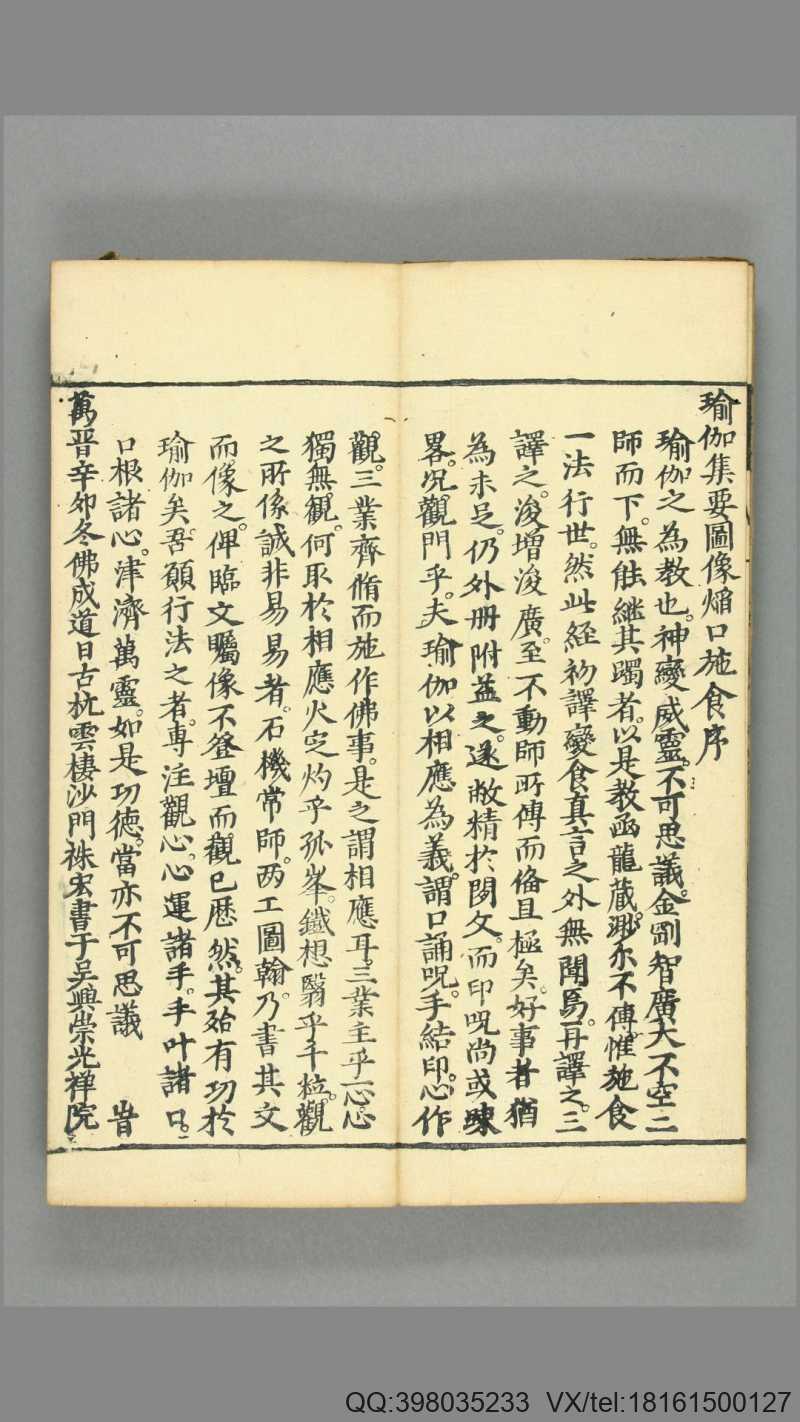 瑜伽集要圖像焔口施食序
瑜伽之為教也。神變威靈。不可思議。金剛智廣大不空二
師而下。無能繼其躅者。以是教函龍藏。渺尓不傳。惟施食
一法行世。然此經初譯變食真言之外無聞焉。再譯之。三
譯之。浚增浚廣。至不動師所傳而俻且極矣。好事者猶
為未足。仍外册附益之。遂敝精於閱文。而印呪尚或踈
畧。况觀門乎。夫瑜伽以相應為義。謂口誦呪。手結印。心作
觀。三業齊脩而施作佛事。是之謂相應耳。三業主乎一心。心
獨無觀。何取於相應火㝎灼乎孤峯。鐵想翳乎千粒。觀
之所係誠非易易者。石機常師。丙工圖翰。乃書其文
而像之。俾臨文矚像不登壇而觀已歷然。其殆有功於
瑜伽矣。吾願行法之者。專注觀心。心運諸手。手叶諸口。
口根諸心。津濟萬靈。如是功德。當亦不可思議 旹
萬曆辛卯冬佛成道日古杭雲棲沙門袾宏書于吳興崇光禅院
QQ:398035233 VX/tel:18161500127